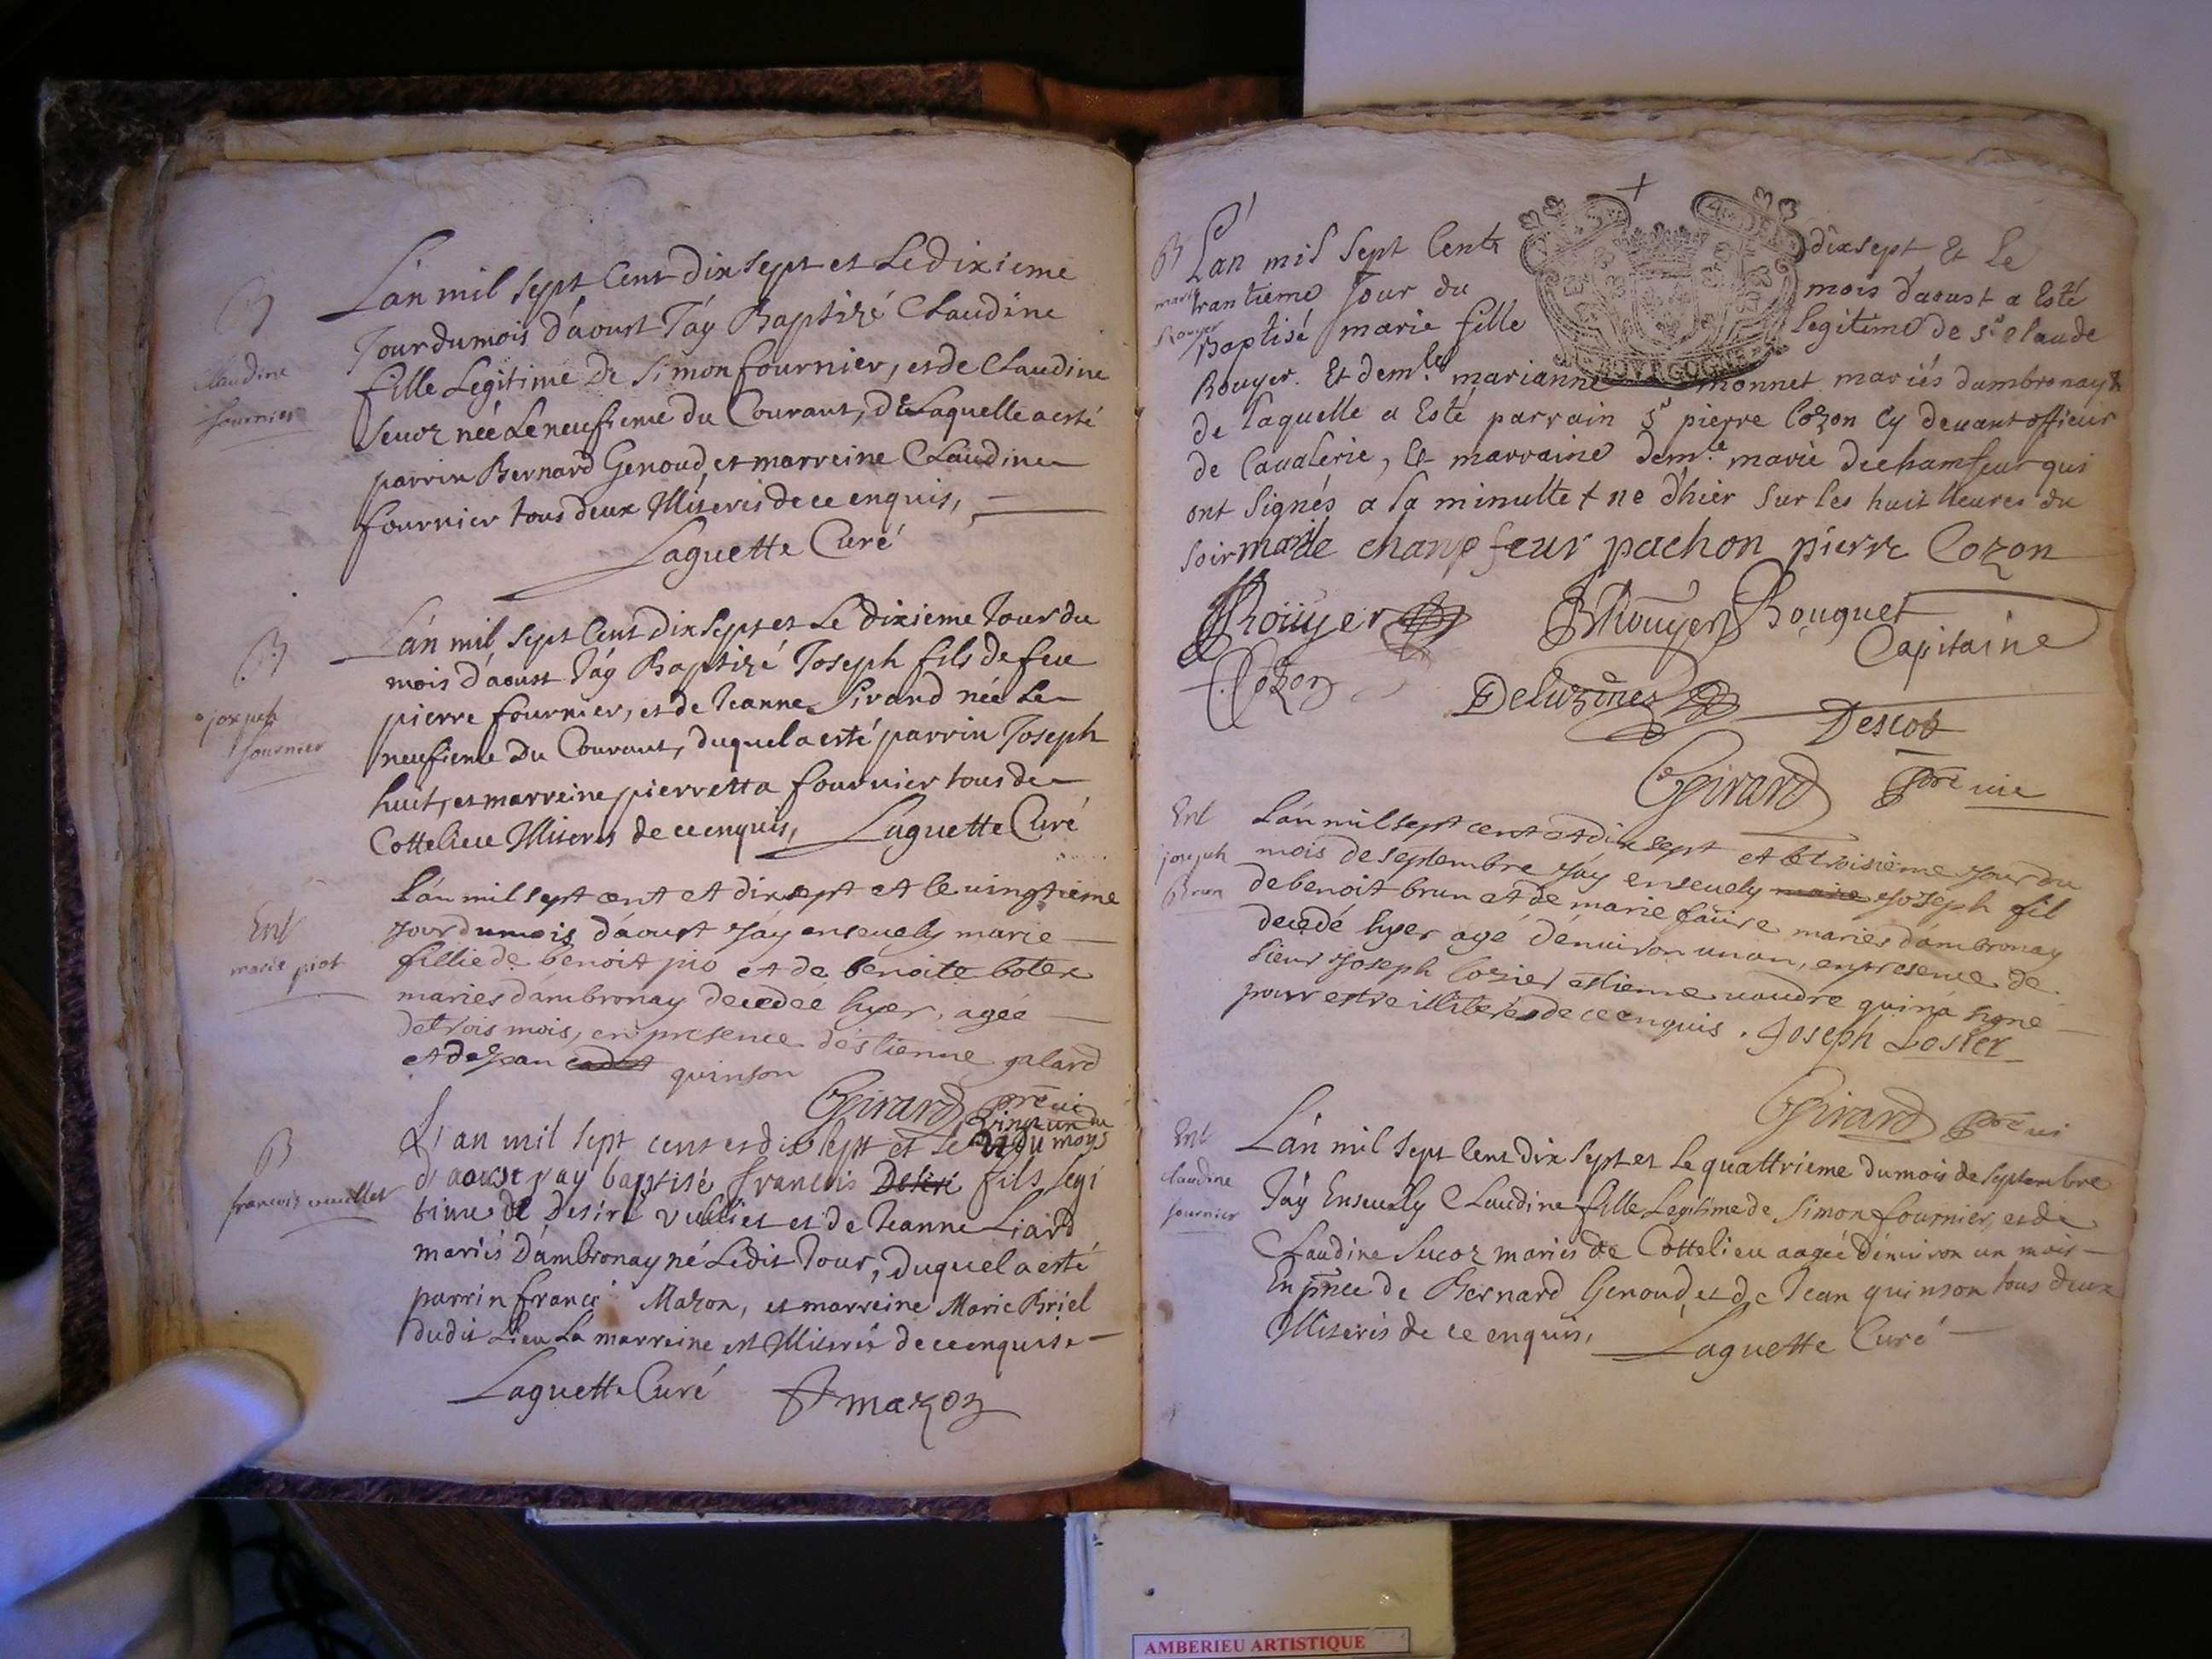 B
Claudine
fournier
L'an mil sept Cent dix sept et Le dixieme
Jour du mois d'aoust J'ay Baptizé Claudine
fille Legitime De Simon fournier, et de Claudine
Sucoz née Le neufieme du Courant, de Laquelle a esté
parrin Bernard Genoud, et marreine Claudine
fournier tous deux Illiterés de ce enquis,
Laguette Curé
B
joseph
fournier
L'an mil sept Cent dix sept et Le dixieme Jour du
mois d'aoust J'ay Baptizé Joseph fils de feu
pierre fournier, et de Jeanne Sirand née Le
neufieme Du Courant, duquel a esté parrin Joseph
huit, et marreine pierretta fournier tous de
Cottelieu Illiterés de ce enquis, Laguette Curé
Ent
marie piot
L'an mil sept cent et dix sept et le vingtieme
jour du mois d'aoust j'ay enseuely marie
fillie de benoit pio et de benoite boter
maries d'ambronay decedeé hyer, agée
de trois mois, en presence d'estienne galard
et de jean quinson
Girard pre vi
B
francois vuillet
L'an mil sept cent et dix sept et le vingt un du
21 du moys
d'aoust j'ay baptisé francois Desire fils legi
time de Desire vulliet et de Jeanne Liard
mariés D'ambronay né Ledit Jour, duquel a esté
parrin franci Mazon, et marreine Marie Briel
dudit Lieu La marreine est Illiterée de ce enquise
Laguette Curé F mazon
B
marie
Rouyer
L'an mil sept Cent dixsept et le
trantieme Jour du mois d'aoust a Esté
Baptisé marie fille legitime de Sr claude
Rouyer. Et demlle marianne monnet mariés dambronay &
de laquelle a Esté parrain Sr pierre Cozon Cy deuant officier
de Caualerie, Et marraine demle marie dechamfeur qui
ont Signés a la minutte + ne d'hier sur les huit heures du
soir marie champfeur pachon pierre Cozon
Rouyer BRouyer Bouquet
Capitaine
Cozon Delusines Descot
Girard pre vie
BOVRGOGNE
Ent
joseph
Brun
L'an mil sept cent et dix sept et le troisieme jour du
mois de septembre j'ay enseuely marie joseph fil
de benoit brun et de marie faure maries d'ambronay
decedé hyer agé d'enuiron un an, en presence de
sieur joseph losier estienne uaudre qui n'a signe
pour estre illiterés de ce enquis. Joseph Losier
Girard pre vi
Ent
claudine
fournier
L'an mil sept Cent dix sept et Le quattrieme du mois de septembre
J'ay Enseuely Claudine fille Legitime de Simon fournier, et de
Claudine Sucoz mariés de Cottelieu aagée d'enuiron un mois
En pnce de Bernard Genoud, et de Jean quinson tous deux
Illiterés de ce enquis, Laguette Curé
AMBERIEU ARTISTIQUE